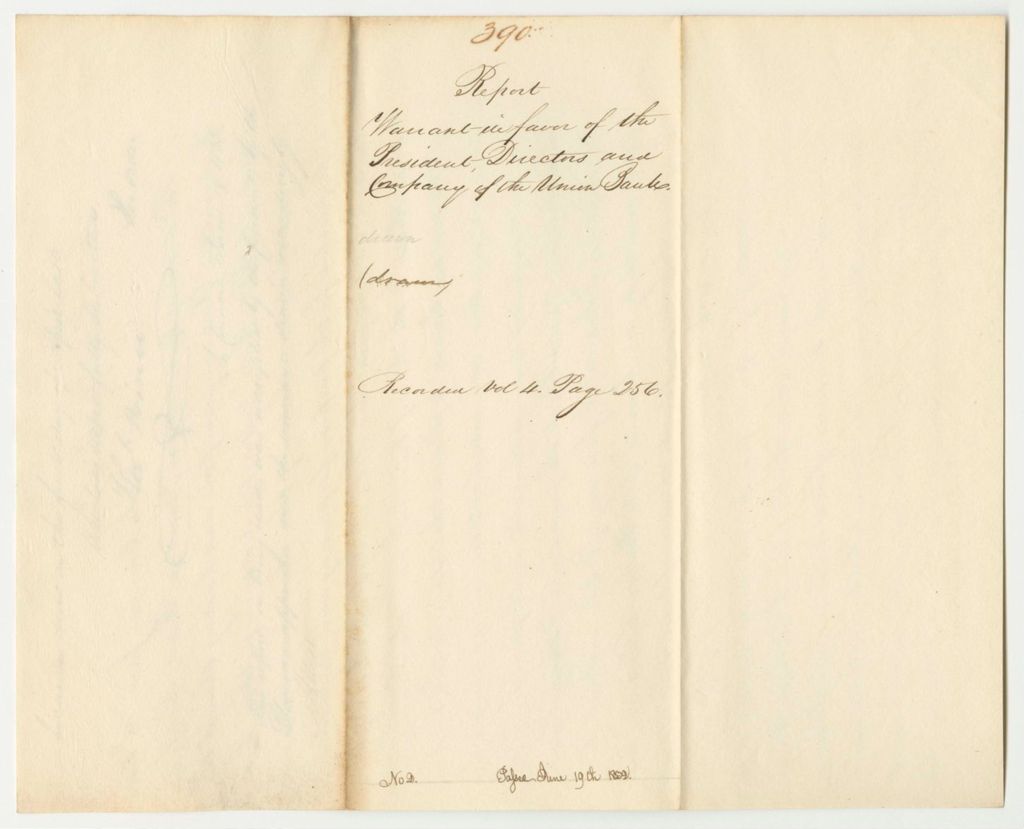 390.
Report
Warrant in favor of the
President, Directors and
Company of the Union Bank.
drawn
(drawn)
Recorded Vol 4. Page 256.
No 2. June 19th